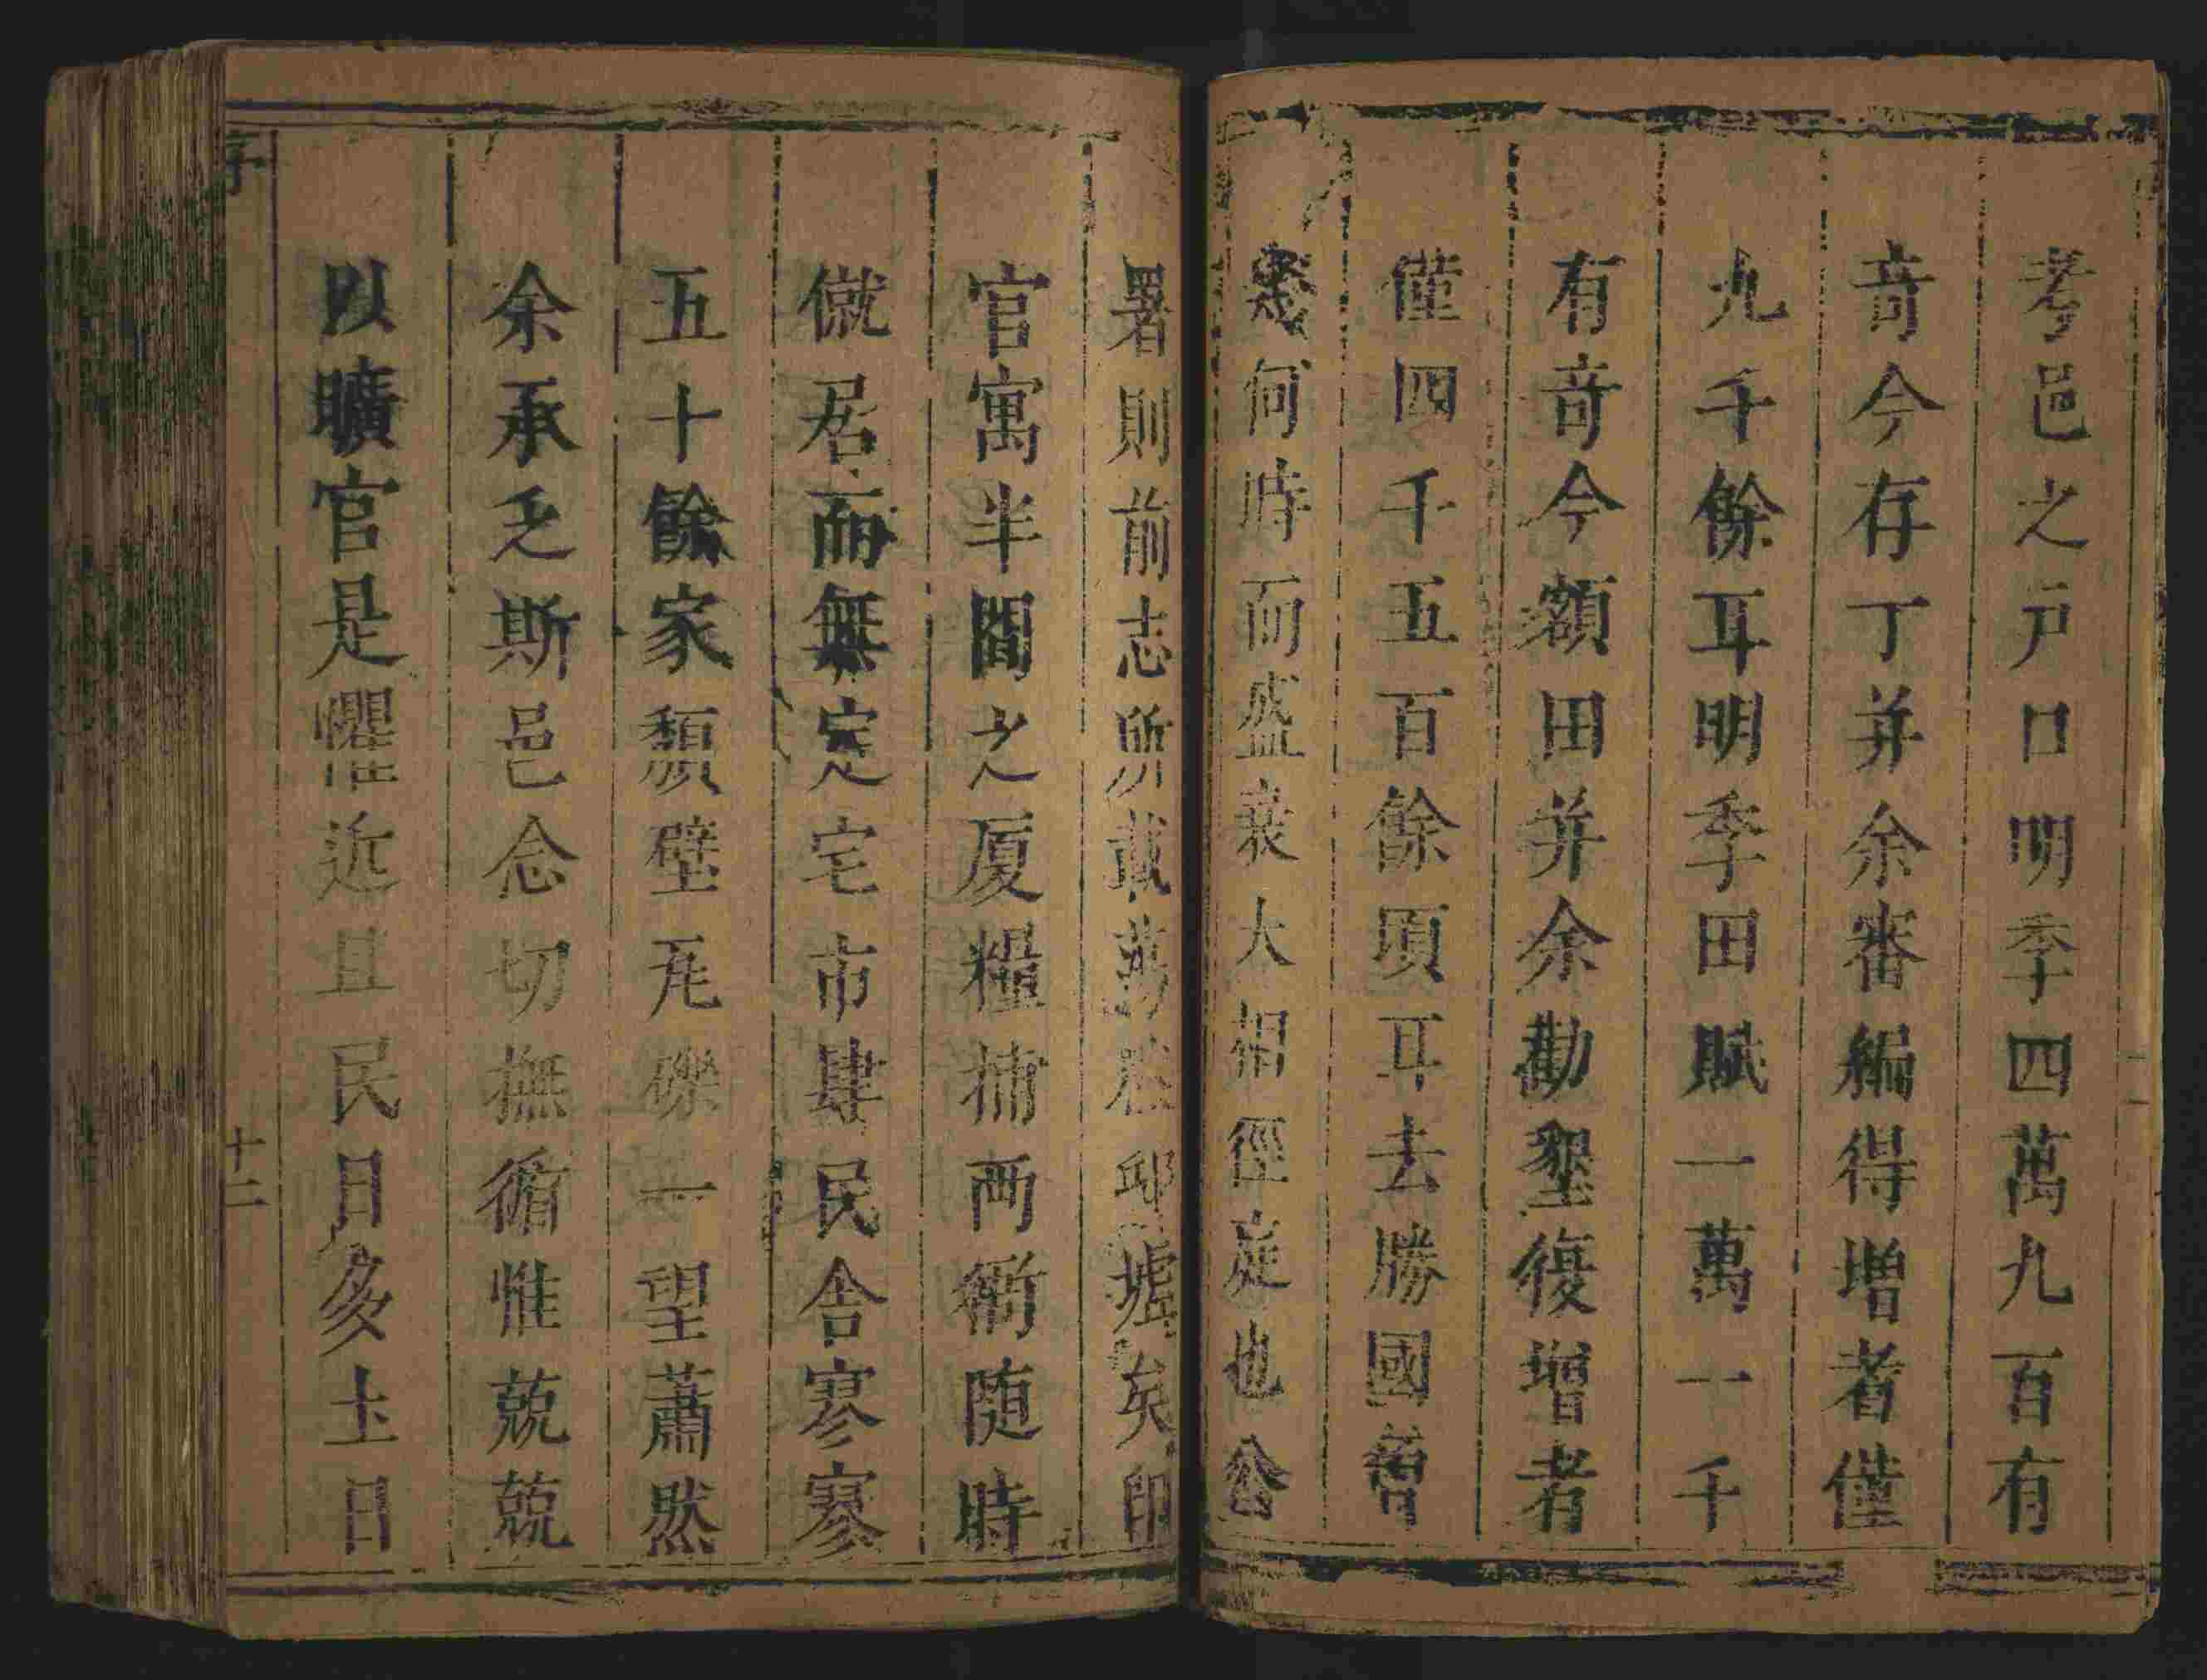 考邑之戸口明季四萬九百有
竒今存丁并余審編得増者僅
九千餘耳明季田賦一萬一千
有竒今額田并余勸墾復增者
僅四千五百餘頃耳去勝國曾
幾何時而盛衰大相徑庭也公
署則前志所載蕩然邱墟矣印
官寓半閒之厦糧捕两衙随時
僦居而無定宅市肆民舎寥寥
五十餘家頽壁瓦礫一望蕭然
余承乏斯邑念切撫循惟兢兢
以曠官是懼近且民日多土日
序
十二